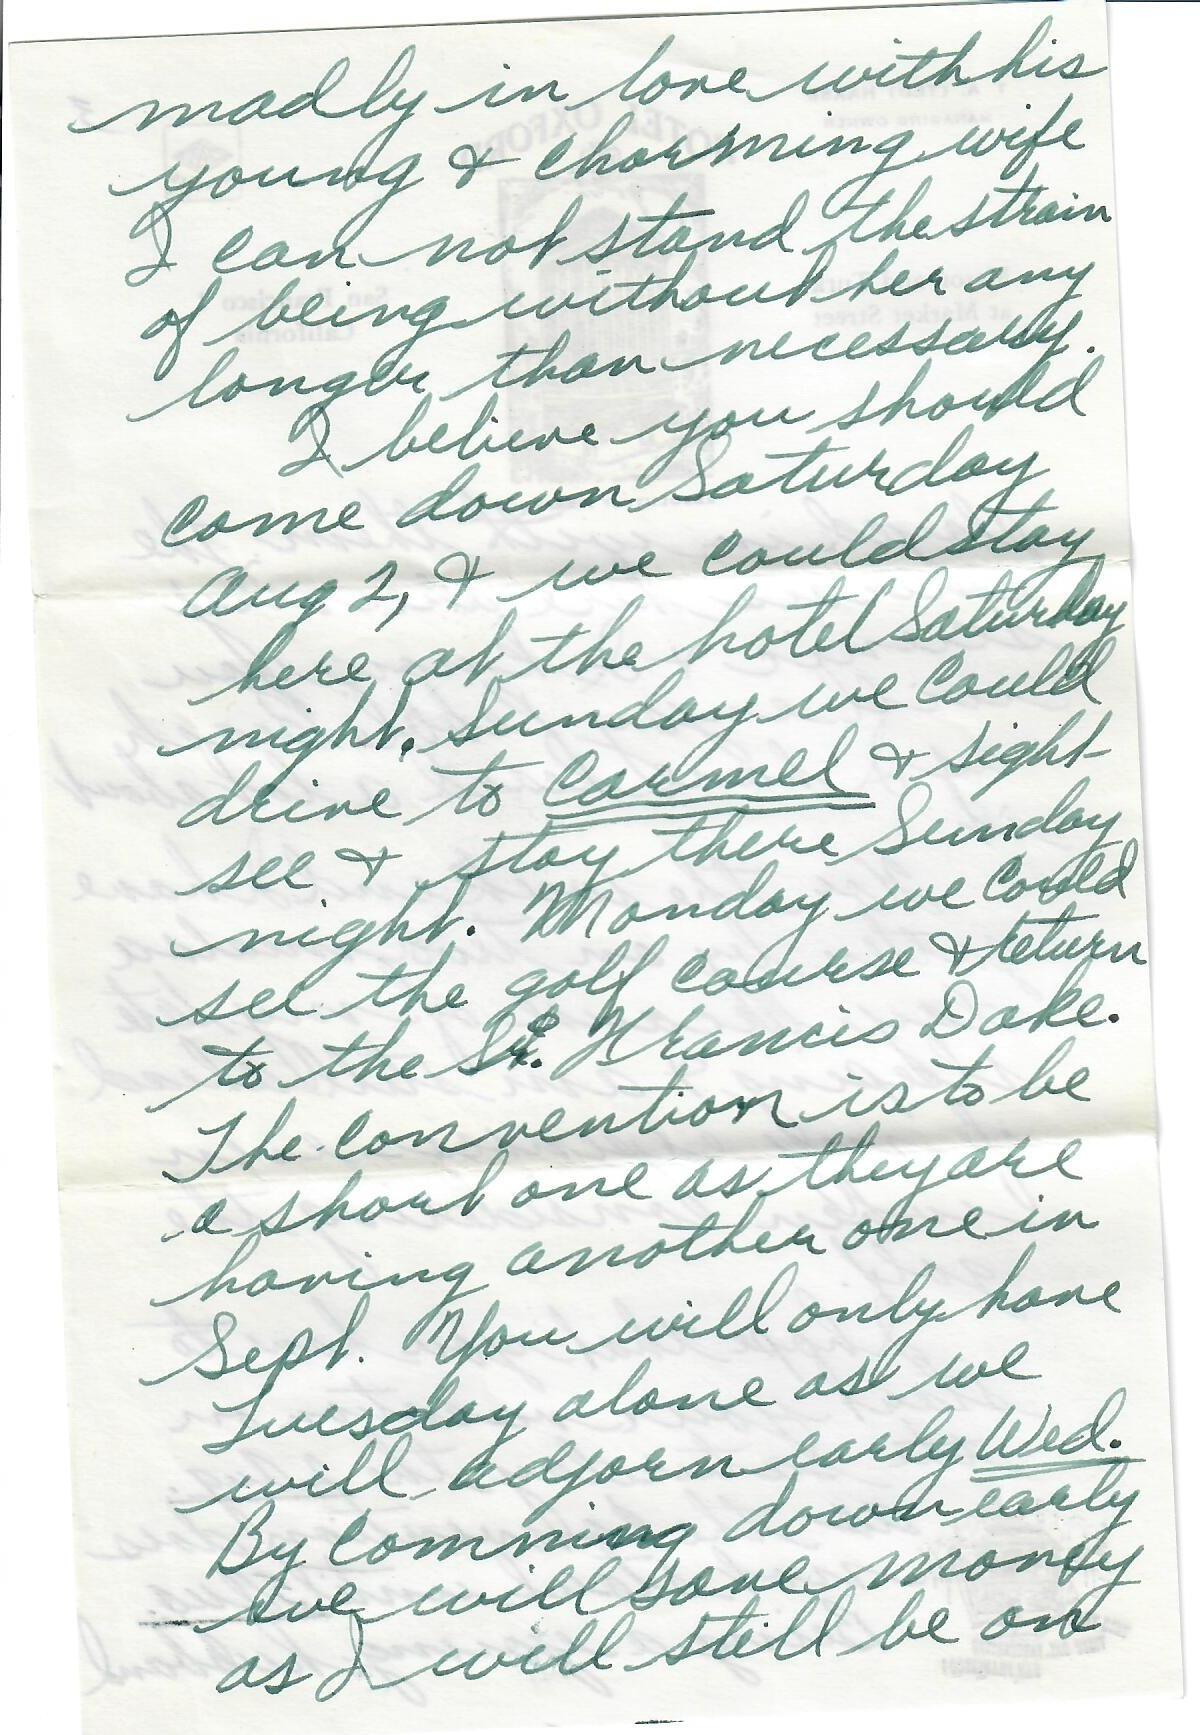 madly in love with his
young & charming wife
I can not stand the strain
of being without her any
longer than necessary.
I believe you should
come down Saturday
Aug 2, & we could stay
here at the hotel Saturday
night. Sunday we could
drive to Carmel & sight
see & stay there Sunday
night. Monday we could
see the golf course & return
to the St. Francis Dake.
The convention is to be
a short one as they are
having another one in
Sept. You will only have
Tuesday alone as we
will adjorn early Wed.
By comming down early
we will save money
as I will still be on